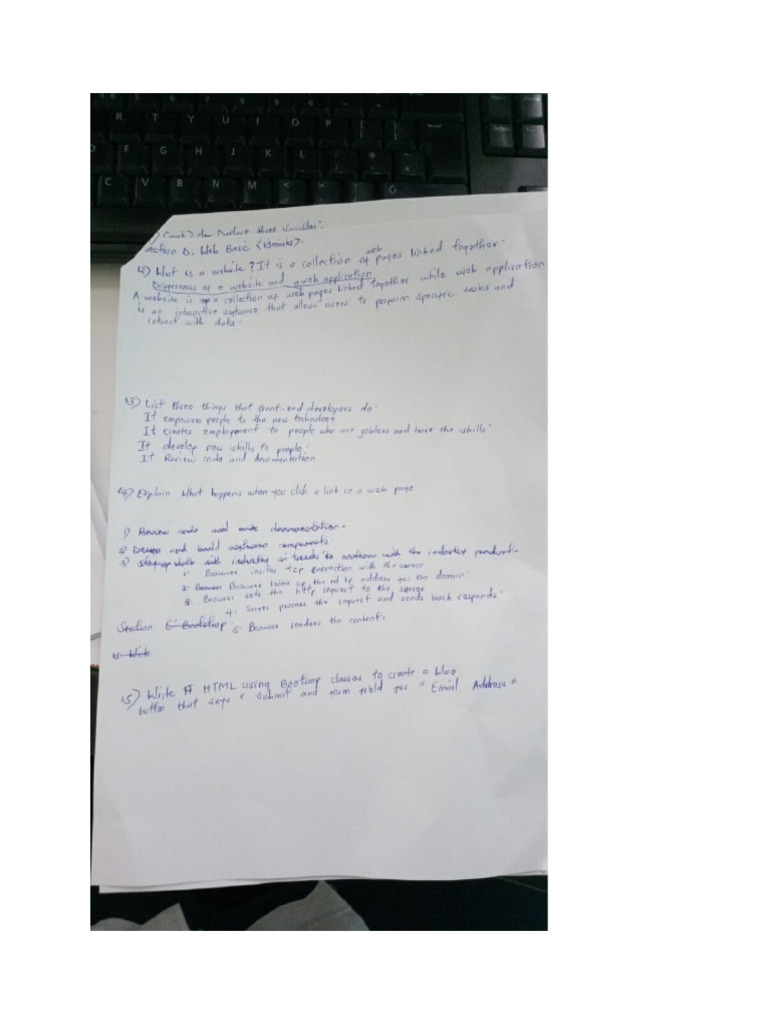 R T Y U I O P
F G H J K L
C V B N M
Declare three Variables.
Section D: Web Basic <15marks>.
12) What is a website? It is a collection of web pages linked together.
Differences of a website and a web application.
A website is a collection of web pages linked together while web application
is an interactive software that allows users to perform specific tasks and
interact with data.
13) List three things that front-end developers do.
It empowers people to the new technology
It creates employment to people who are jobless and have the skills.
It develop new skills to people.
It Review code and documentation
14) Explain What happens when you click a link in a web page
1) Review code and documentation.
2) Design and build software components.
3) with industry trends to with the industry product.
1. Browser TCP connection with the server
2. Browser looks up the IP address for the domain.
3. Browser the http request to the server
4. Server process the request and sends back responds.
Section E: Bootstrap. 5. Browser renders the content.
15 Write
15) Write HTML using Bootsrap classes to create a blue
button that says "Submit and form field for "Email Address".